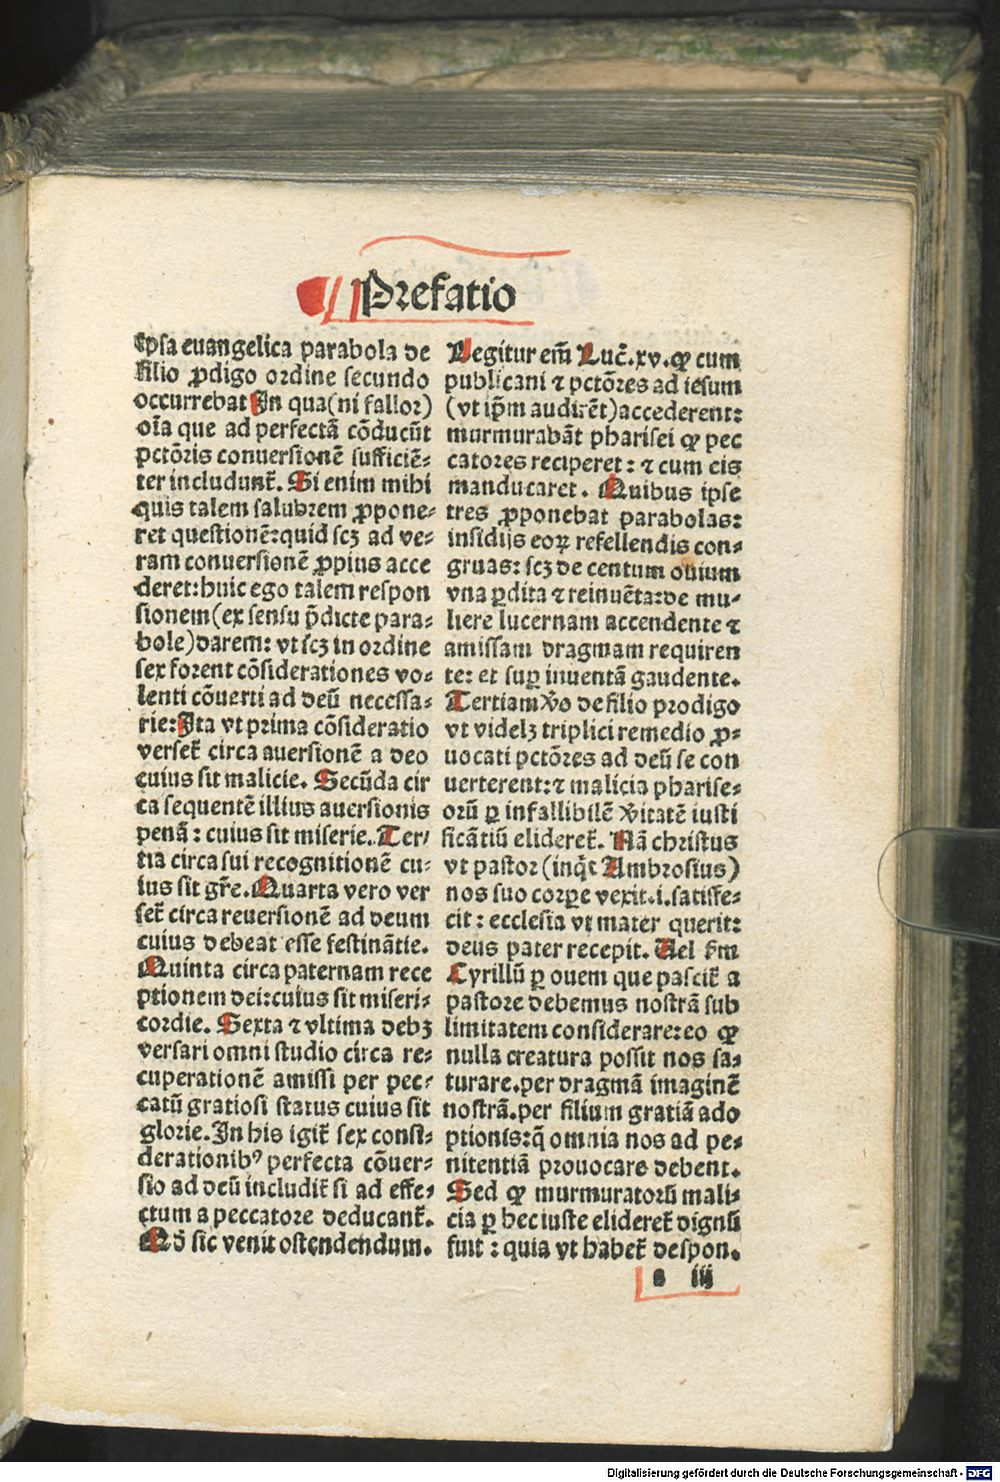 Prefatio
ipsa euangelica parabola de
filio ꝓdigo ordine secundo
occurrebat In qua(ni fallor)
oı̃a que ad perfectã cõducũt
pctõris conuersionẽ sufficiẽ⸗
ter includunt̃. Si enim mihi
quis talem salubrem ꝓpone⸗
ret questionẽ:quid scꝫ ad ve⸗
ram conuersionẽ ꝓpius acce
deret:huic ego talem respon
sionem(ex sensu p̃dicte para⸗
bole)darem: vt scꝫ in ordine
sex forent cõsiderationes vo⸗
lenti cõuerti ad deũ necessa⸗
rie:Ita vt prima cõsideratio
verset̃ circa auersionẽ a deo
cuius sit malicie. Secũda cir
ca sequentẽ illius auersionis
penã: cuius sit miserie. Ter⸗
tia circa sui recognitionẽ cu⸗
ius sit gr̃e. Quarta vero ver
set̃ circa reuersionẽ ad deum
cuius debeat esse festinãtie.
Quinta circa paternam rece
ptionem dei:cuius sit miseri⸗
cordie. Sexta ⁊ vltima debꝫ
versari omni studio circa re⸗
cuperationẽ amissi per pec⸗
catũ gratiosi status cuius sit
glorie. In his igit̃ sex consi⸗
derationibꝰ perfecta cõuer⸗
sio ad deũ includit̃ si ad effe⸗
ctum a peccatore deducant̃.
Qd̃ sic venit ostendendum.
Legitur em̃ Luc̃.xv.ꝙ cum
publicani ⁊ pctõres ad iesum
(vt ip̃m audirẽt)accederent:
murmurabãt pharisei ꝙ pec
catores reciperet: ⁊ cum eis
manducaret. Quibus ipse
tres ꝓponebat parabolas:
insidijs eoꝝ refellendis con⸗
gruas: scꝫ de centum ouium
vna ꝑdita ⁊ reinuẽta:de mu⸗
liere lucernam accendente ⁊
amissam dragmam requiren
te: et suꝑ inuentã gaudente.
Tertiam ṽo de filio prodigo
vt videlꝫ triplici remedio ꝓ⸗
uocati pctõres ad deũ se con
uerterent:⁊ malicia pharise⸗
orũ ꝑ infallibilẽ ṽitatẽ iusti
ficãtiũ elideret̃. Nã christus
vt pastor(inq̃t Ambrosius)
nos suo corꝑe vexit.i.satisfe⸗
cit: ecclesia vt mater querit:
deus pater recepit. Vel s̃m
Cyrillũ ꝑ ouem que pascit̃ a
pastore debemus nostrã sub
limitatem considerare:eo ꝙ
nulla creatura possit nos sa⸗
turare.per dragmã imaginẽ
nostrã.per filium gratiã ado
ptionis:q̃ omnia nos ad pe⸗
nitentiã prouocare debent.
Sed ꝙ murmuratorũ mali⸗
cia ꝑ hec iuste elideret̃ dignũ
fuit: quia vt habet̃ despon.
a iij
Digitalisierung gefördert durch die Deutsche Forschungsgemeinschaft - DFG